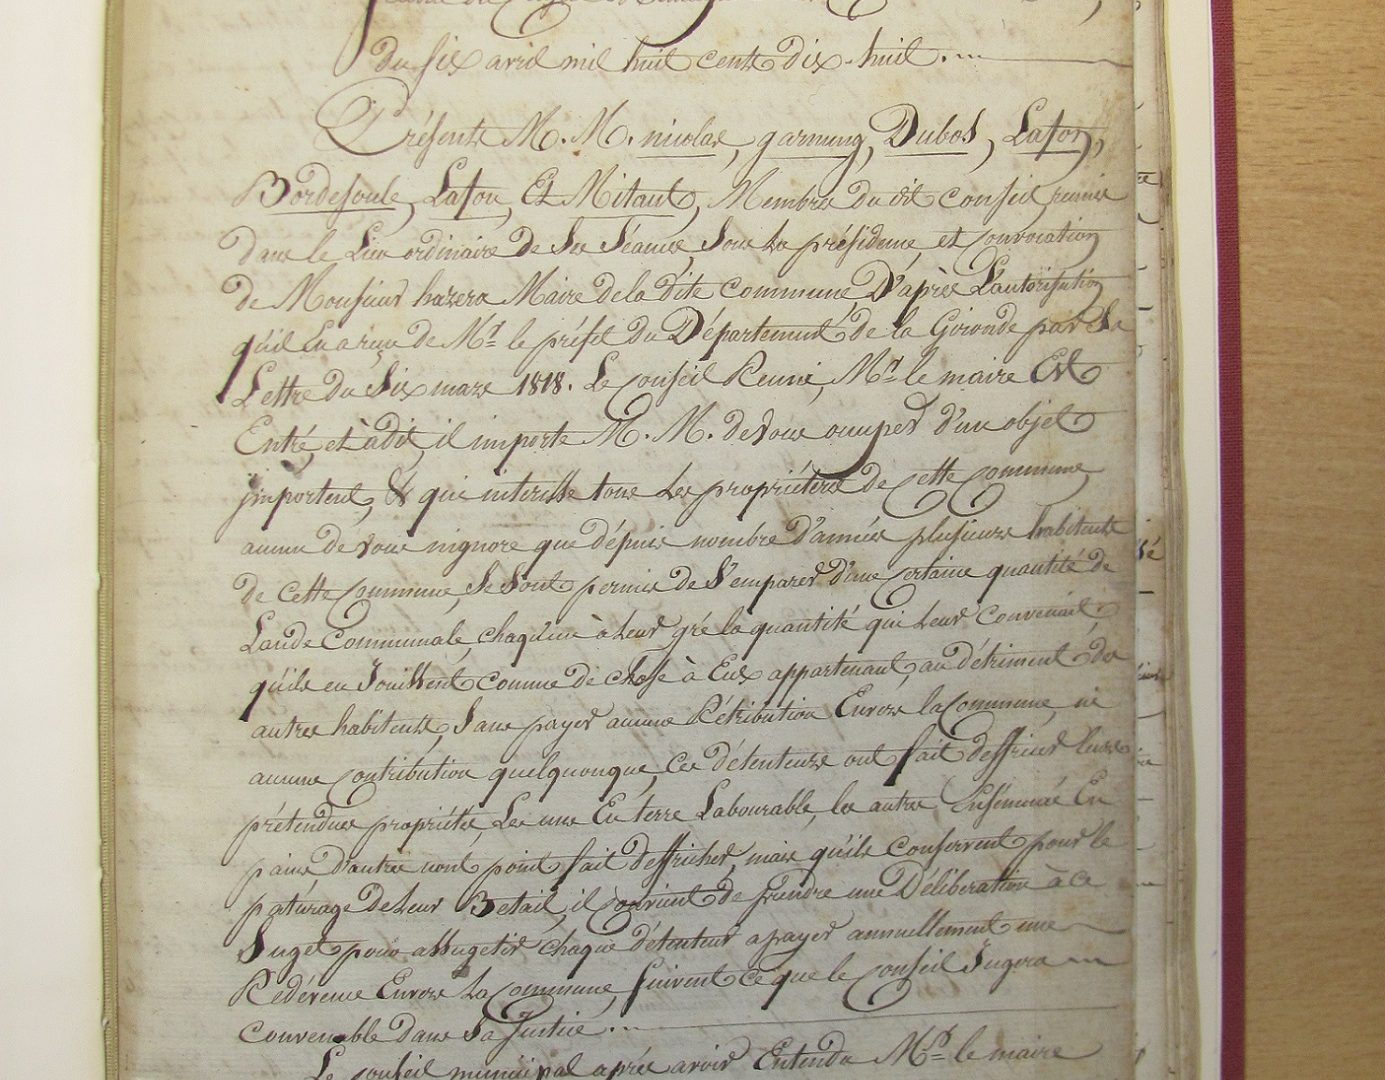 du Six avril mil huit cents dix-huit.
Présents M. M. nicolas, garnung, Dubos, Lafon,
Bordesoule, Lafon, Et Mitaut, Membres du dit conseil, reunis
dans le Lieu ordinaire de Ses Séances, Sous La présidence, et Convocation
de Monsieur hazera Maire de la dite commune, D'après L'autorisation
qu'il En a reçu de Mr. le préfet du Département de la Gironde par Sa
Lettre du Six mars 1818. Le Conseil Reuni, Mr. le maire Est
Entré, et à dit, il importe M. M. de vous occuper d'un objet
important, & qui interesse tous Les propriétéres de Cette Commune,
aucun de vous nignore que dépuis nombre d'années plusieurs habitents
de cette Commune, Se Sont permis de S'emparer d'une Certaine quantité de
Lande Communale, chaqu'un à Leur gré la quantité qui Leur Convenait,
qu'ils en Jouissent comme de chose à Eux appartenant, au détriment des
autres habitents, Sans payer aucune Rétribution Envers la Commune, ni
aucune Contribution quelquonque, Ces détenteurs ont fait deffricher leurs
prétendues propriétés, Les uns En terre Labourable, les autres Ensémencé En
pains D'autres n'ont point fait deffricher, mais qu'ils Conservent pour le
paturage de Leur Betail, il Convient de prendre une Déliberation à ce
Suget pour assugetir chaque détenteur a payer annuellement une
Redévence Envers La Commune, Suivent ce que le Conseil Jugera
convenable dans Sa Justice.
Le conseil municipal après avoir Entendu Mr. le maire